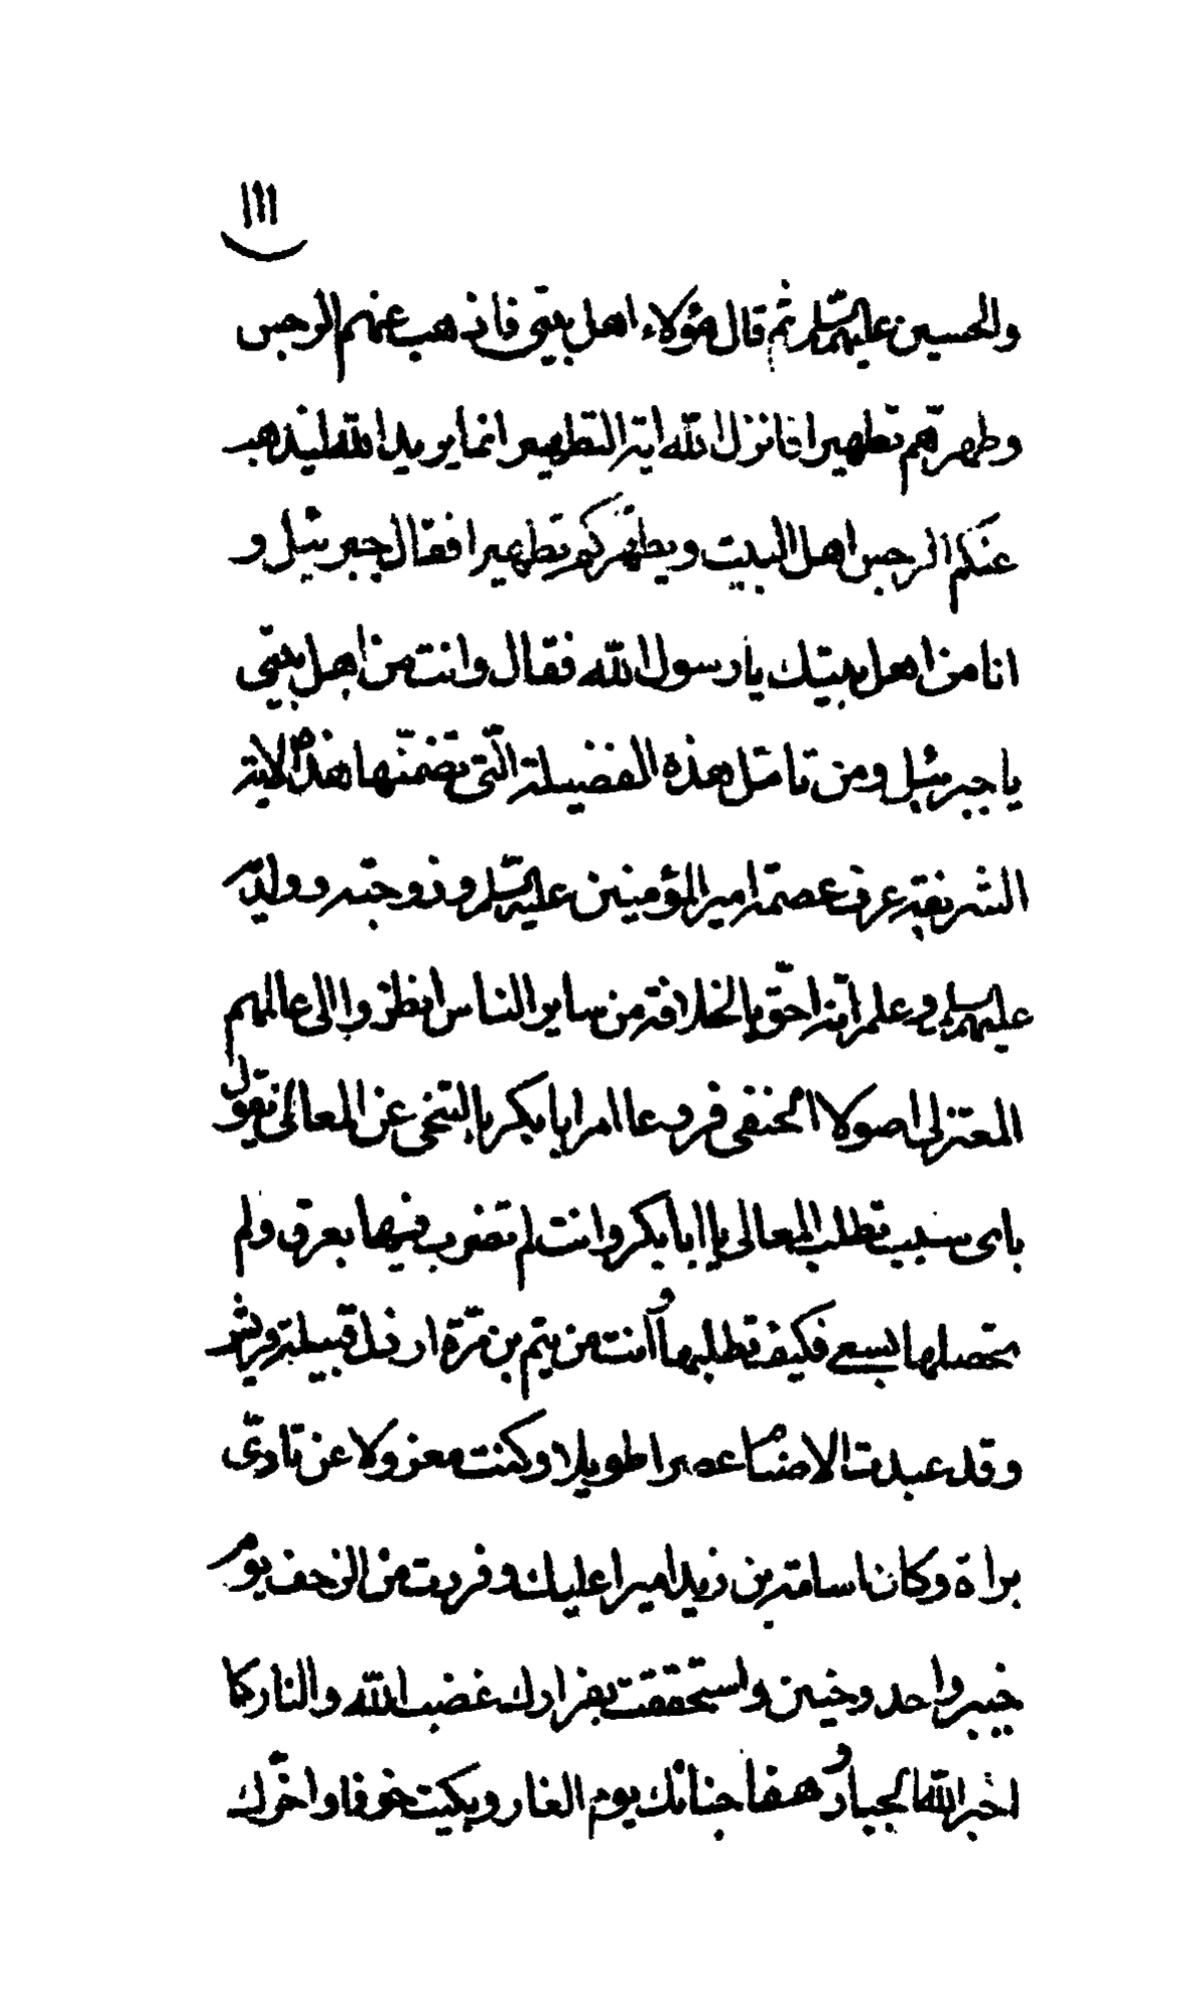 ١١١
والحسين عليهم السلم ثم قال هؤلاء اهل بيتى فاذهب عنهم الرجس
وطهرهم تطهيرا فانزل الله اية التطهير انما يريد الله ليذهب
عنكم الرجس اهل البيت ويطهركم تطهيرا فقال جبرئيل و
انا من اهل بيتك يا رسول الله فقال وانت من اهل بيتى
يا جبرئيل ومن تامّل هذه الفضيلة الّتى تضمّنها هذه الاية
الشريفة عرف عصمة امير المؤمنين عليه السّلم و زوجته وولديه
عليهم السلم وعلم انّه احقّ بالخلافة من ساير الناس انظروا الى عالمهم
المعتزلى اصولا الحنفى فروعا امر ابا بكر بالتنحى عن المعالى يقول
باى سبب تطلب المعالى يا ابا بكر وانت لم تضرب فيها بعرق ولم
تحصلها بسعى فكيف تطلبها وانت من تيم بن مرّة ارذل قبيلة قريش
وقد عبدت الاصنام عصرا طويلا وكنت معزولا عن تادّى
براة وكان اسامة بن زيد اميرا عليك وفررت من الزحف يوم
خيبر واحد وحنين واستحققت بفرارك غضب الله والنار كما
اخبر الله الجبار و هفا جنانك يوم الغار وبكيت خوفا واخّرك